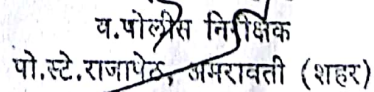 व.पोलीस निरीक्षक
पो.स्टे.राजापेठ, अमरावती (शहर)